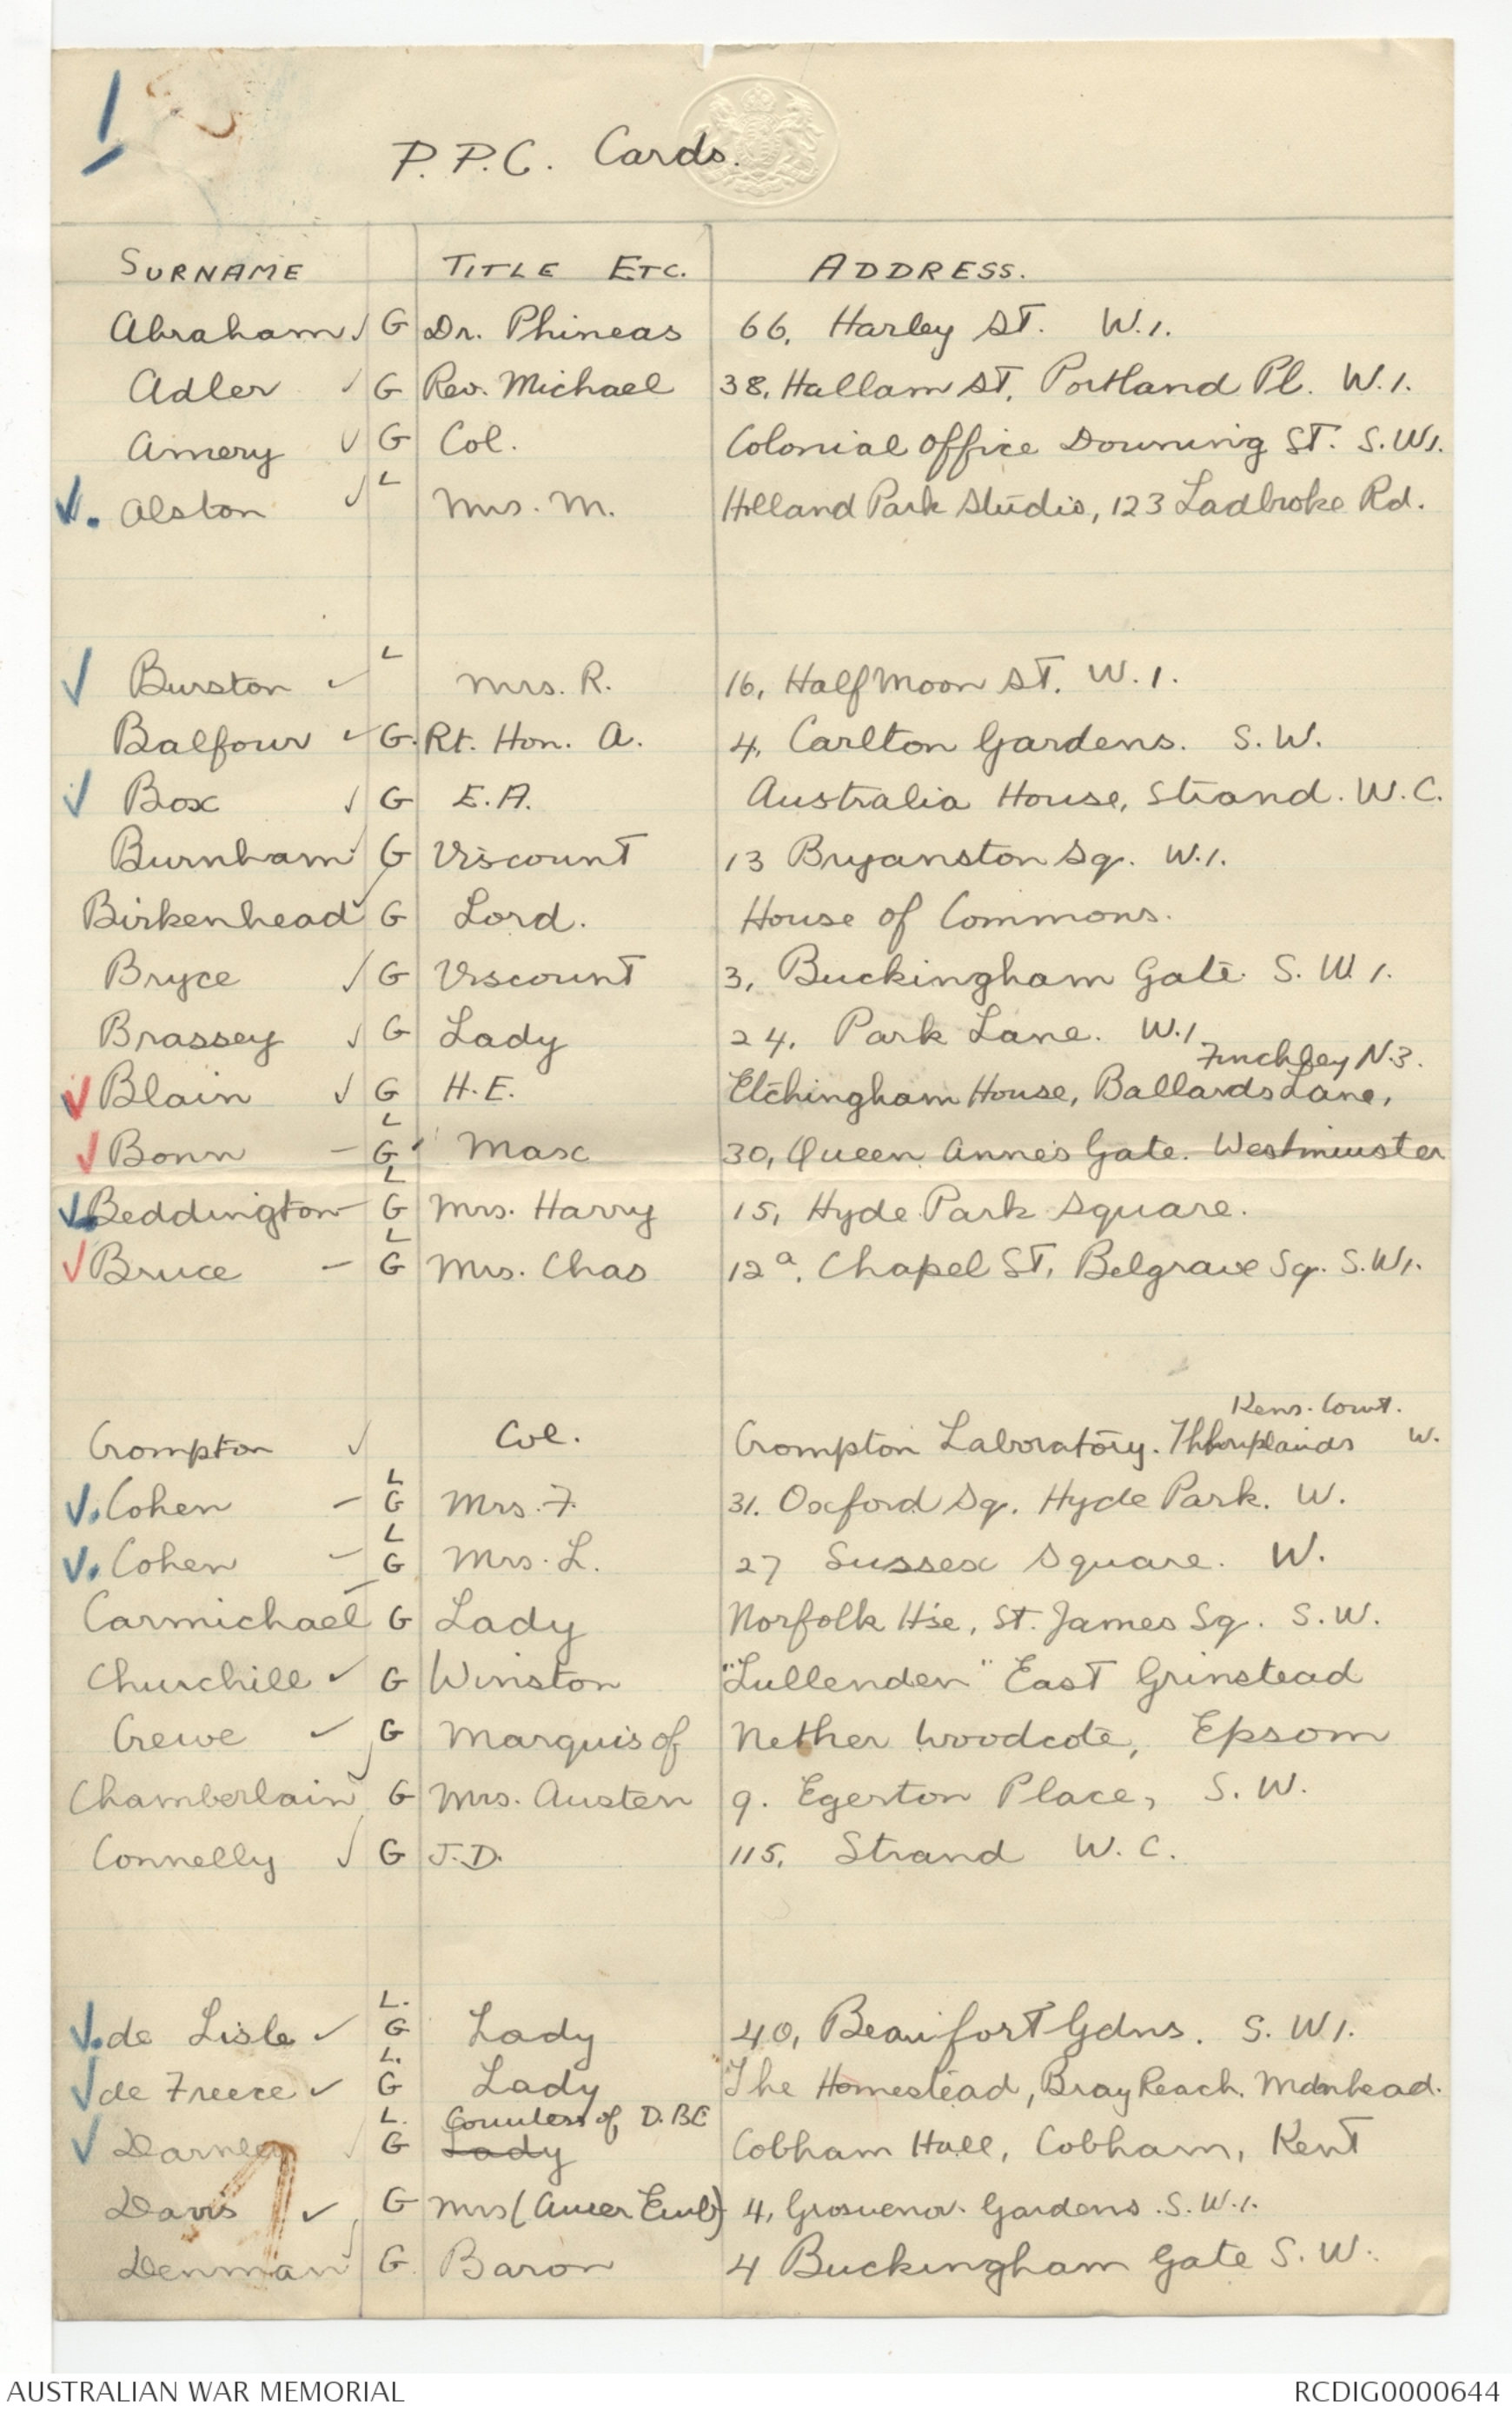 1
P.P.C. Cards.
SURNAME TITLE ETC. ADDRESS.
Abraham ✓ G Dr. Phineas 66, Harley St. W.1.
Adler ✓ G Rev. Michael 38, Hallam St, Portland Pl. W.1.
Amery ✓ G Col. Colonial Office Downing St. S.W1.
✓. Alston ✓ L Mrs. M. Holland Park Studio, 123 Ladbroke Rd.
✓ Burston ✓ L Mrs. R. 16, Half Moon St. W.1.
Balfour ✓ G. Rt. Hon. A. 4, Carlton Gardens. S.W.
✓ Box ✓ G E.A. Australia House, Strand. W.C.
Burnham ✓ G Viscount 13 Bryanston Sq. W.1.
Birkenhead ✓ G Lord. House of Commons.
Bryce ✓ G Viscount 3, Buckingham Gate. S.W.1.
Brassey ✓ G Lady 24, Park Lane. W.1
Finchley N.3.
✓ Blain ✓ G H.E. Etchingham House, Ballards Lane,
L
✓ Bonn – G Max 30, Queen Anne's Gate. Westminster
L
✓ Beddington – G Mrs. Harry 15, Hyde Park Square.
L
✓ Bruce – G Mrs. Chas 12a, Chapel St, Belgrave Sq. S.W1.
Kens. Court.
Crompton ✓ Col. Crompton Laboratory. W.
L
✓. Cohen – G Mrs. F. 31. Oxford Sq. Hyde Park. W.
L
✓. Cohen – G Mrs. L. 27 Sussex Square. W.
Carmichael – G Lady Norfolk Hse, St. James Sq. S.W.
Churchill ✓ G Winston "Lullenden" East Grinstead
Crewe ✓ G Marquis of Nether Woodcote, Epsom
Chamberlain ✓ G Mrs. Austen 9. Egerton Place, S.W.
Connelly ✓ G J.D. 115, Strand W.C.
L.
✓. de Lisle ✓ G Lady 40, Beaufort Gdns. S.W1.
L.
✓ de Freece ✓ G Lady The Homestead, Bray Reach. Mdnhead.
L. Countess of D.BE
✓ Darnley ✓ G Lady Cobham Hall, Cobham, Kent
Davis ✓ G Mrs (Amer Emb) 4, Grosvenor Gardens. S.W.1.
Denman ✓ G Baron 4 Buckingham Gate S.W.
AUSTRALIAN WAR MEMORIAL RCDIG0000644